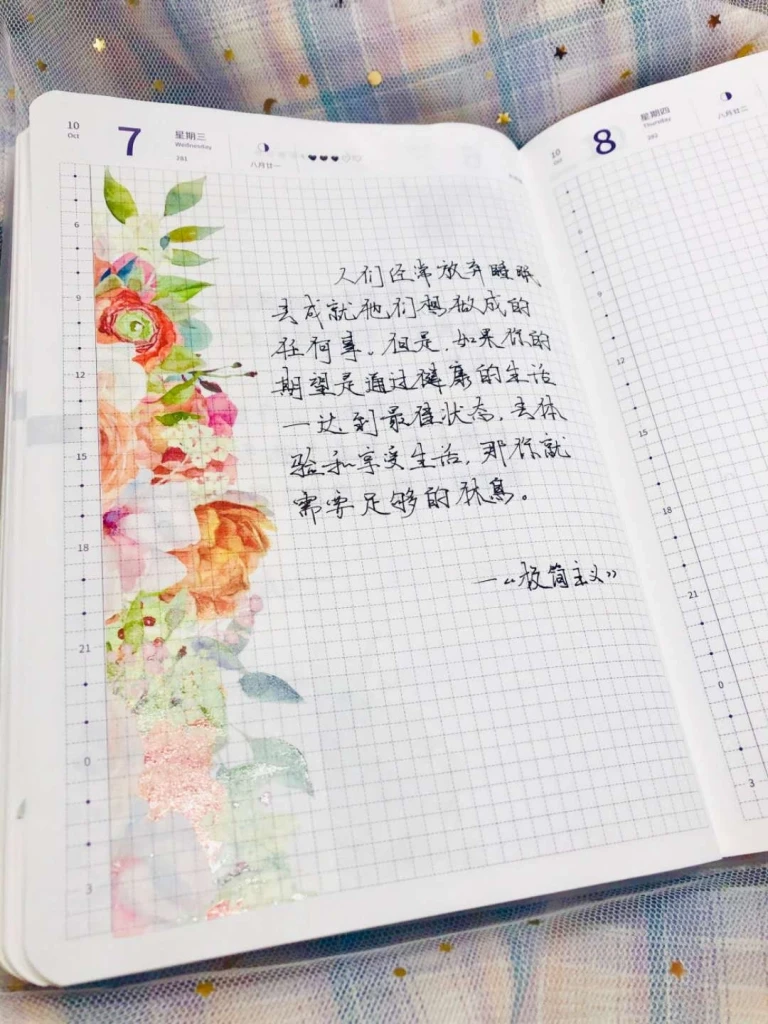 10
Oct
7
星期三
Wednesday
281
八月廿一
6
9
12
15
18
21
0
3
人们经常放弃睡眠
去成就他们想做成的
任何事。但是,如果你的
期望是通过健康的生活
一达到最佳状态,去体
验和享受生活,那你就
需要足够的休息。
—《极简主义》
10
Oct
8
星期四
Thursday
282
八月廿二
6
9
12
15
18
21
0
3